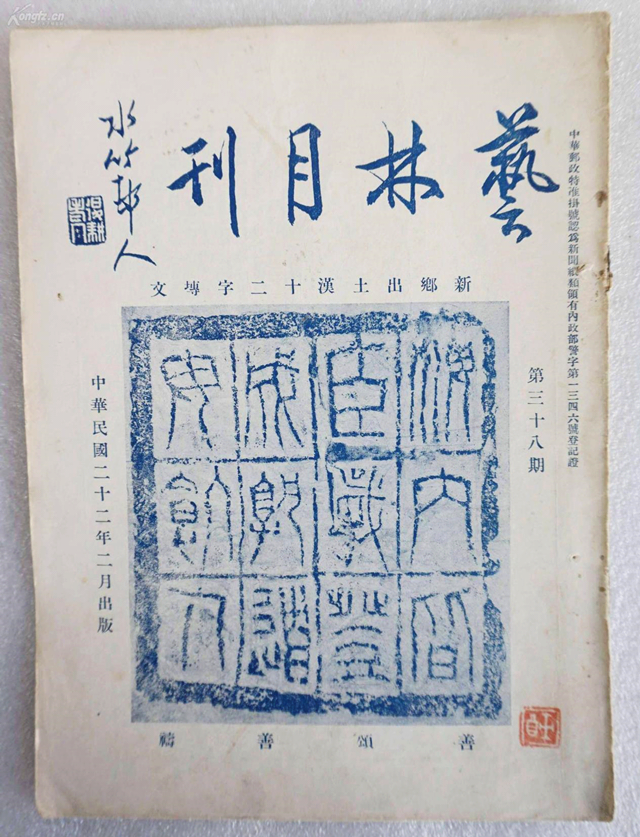 中華郵政特准掛號認爲新聞紙類領有內政部警字第一三四六號登記證
藝林月刊
水竹邨人
新鄉出土漢十二字塼文
第三十八期
海內皆
臣歲登
成孰道
毋飢人
中華民國二十二年二月出版
善頌善禱
kongfz.cn